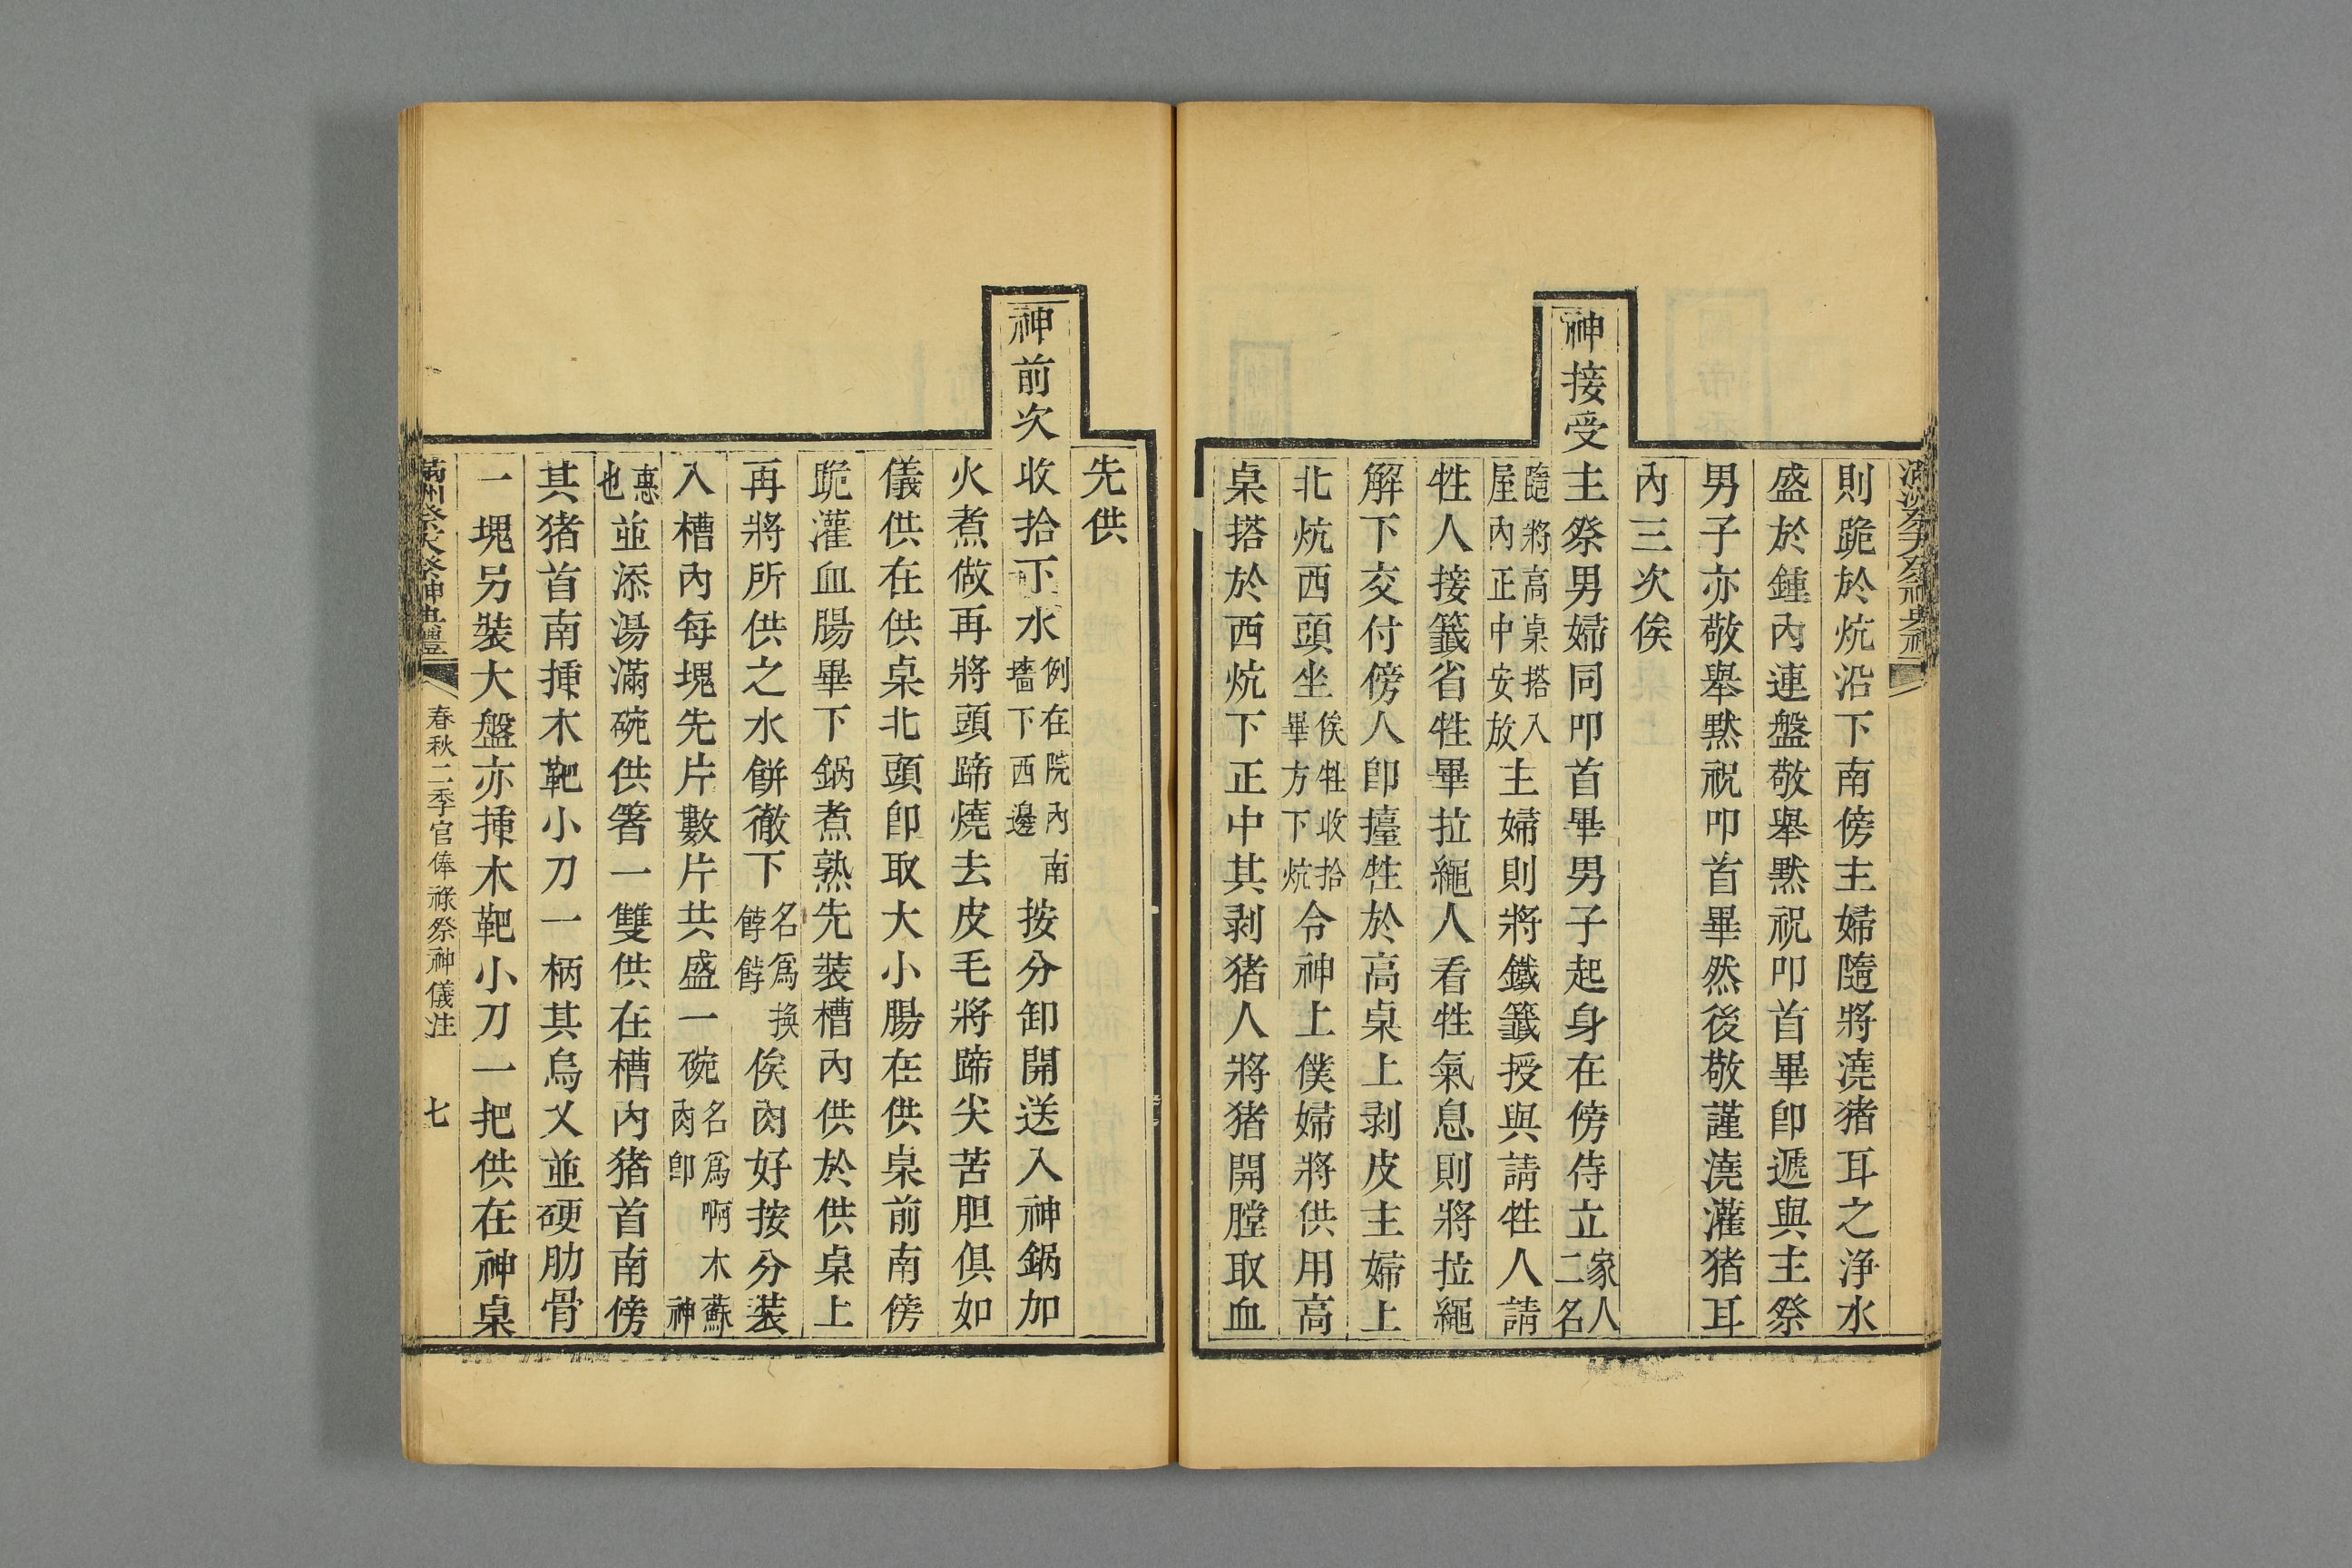 則跪於炕沿下南傍主婦隨將澆猪耳之浄水
盛於鍾內連盤敬舉黙祝叩首畢卽遞與主祭
男子亦敬舉黙祝叩首畢然後敬謹澆灌猪耳
內三次俟
神接受主祭男婦同叩首畢男子起身在傍侍立家人二名
隨將高桌搭入屋內正中安放主婦則將鐵籤授與請牲人請
牲人接籤省牲畢拉繩人看牲氣息則將拉繩
解下交付傍人卽擡牲於高桌上剥皮主婦上
北炕西頭坐俟牲收拾畢方下炕令神上僕婦將供用高
桌搭於西炕下正中其剥猪人將猪開膛取血
先供
神前次收拾下水例在院內南墻下西邊按分卸開送入神鍋加
火煮做再將頭蹄燒去皮毛將蹄尖苦胆俱如
儀供在供桌北頭卽取大小腸在供桌前南傍
跪灌血腸畢下鍋煮熟先装槽內供於供桌上
再將所供之水餅徹下名爲換餑餑俟肉好按分装
入槽內每塊先片數片共盛一碗名爲啊木蘇肉卽神
惠也並添湯滿碗供箸一雙供在槽內猪首南傍
其猪首南揷木靶小刀一柄其烏叉並硬肋骨
一塊另裝大盤亦揷木靶小刀一把供在神桌
滿洲祭天祭神典禮
春秋二季官俸祿祭神儀注
七